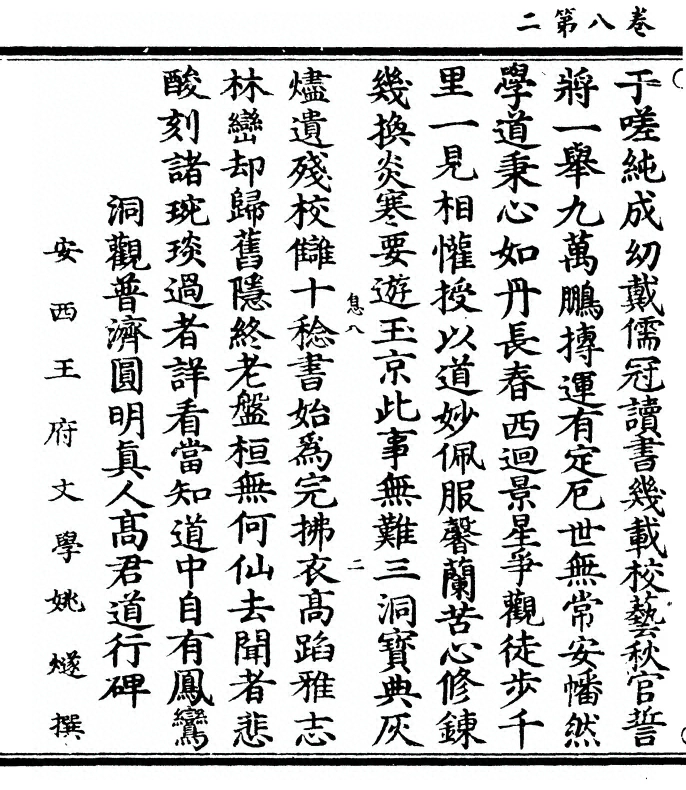 卷八第二
于嗟純成幼戴儒冠讀書幾載校藝秋官誓
將一舉九萬鵬摶運有定厄世無常安幡然
學道秉心如丹長春西迴景星爭觀徒步千
里一見相懽授以道妙佩服馨蘭苦心修鍊
幾換炎寒要遊玉京此事無難三洞寶典灰
息八
二
燼遺殘校讎十稔書始爲完拂衣髙蹈雅志
林巒却歸舊隱終老盤桓無何仙去聞者悲
酸刻諸琬琰過者詳看當知道中自有鳳鸞
洞觀普濟圓明眞人髙君道行碑
安西王府文學姚燧撰